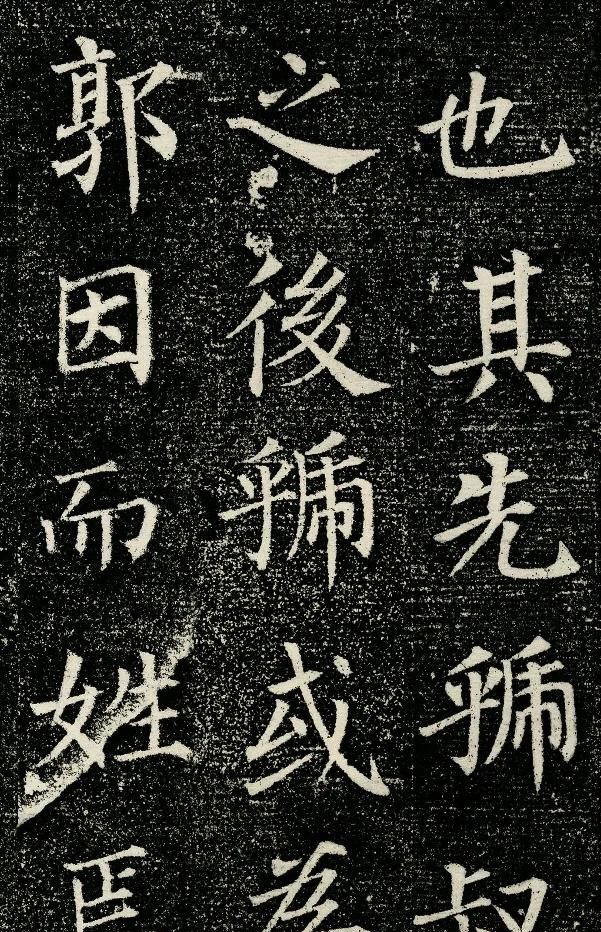 也其先虢叔
之後虢或為
郭因而姓焉